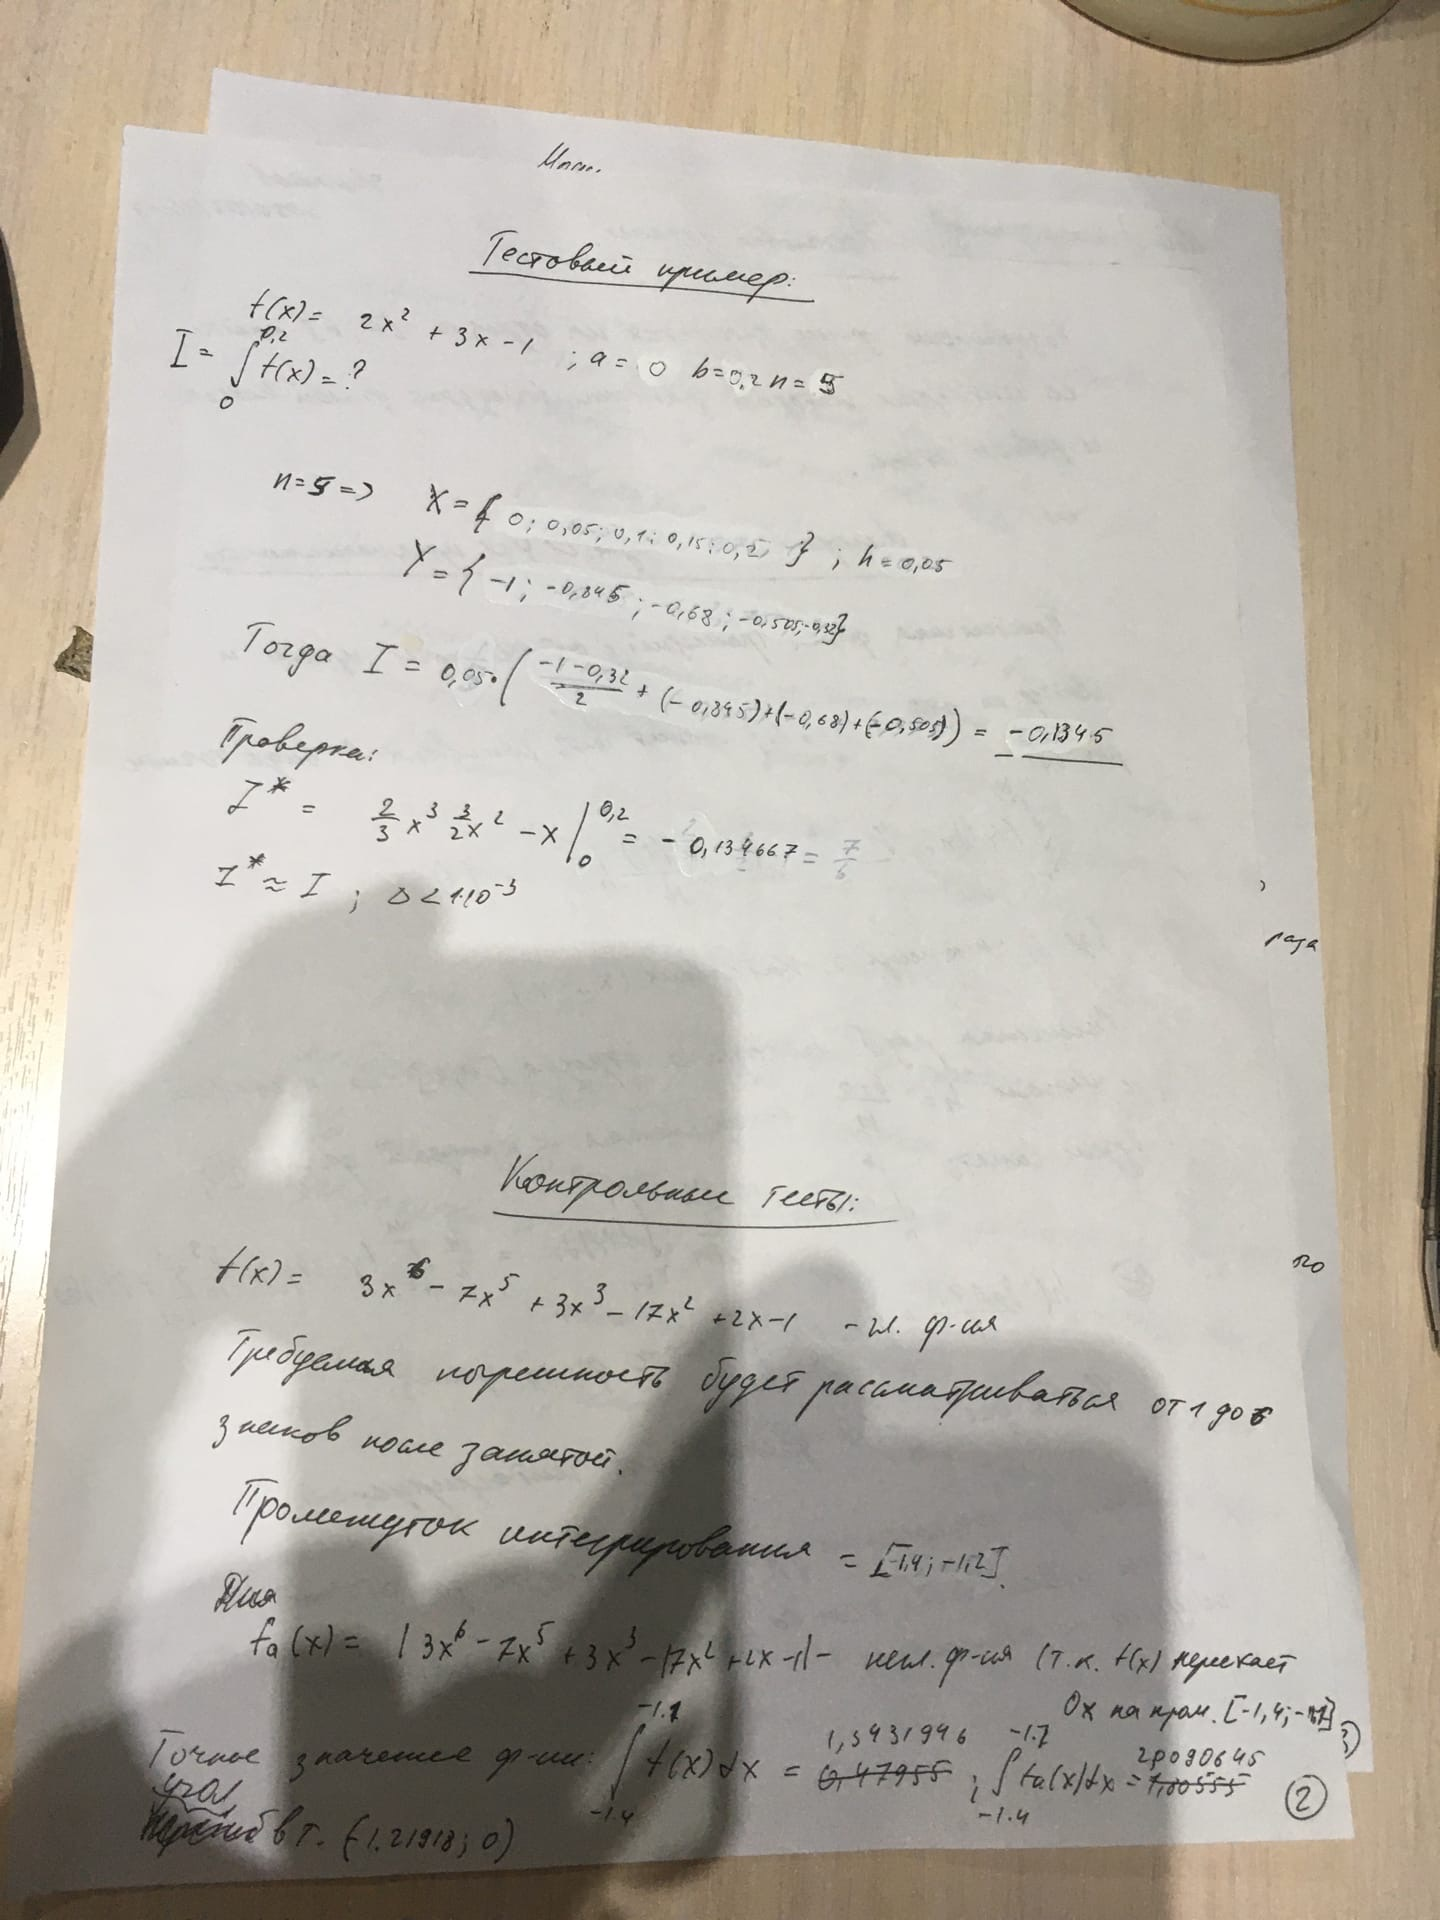 Тестовый пример:
f(x) = 2x² + 3x - 1 ; a = 0 b = 0,2 n = 5
I = ∫₀^0,2 f(x) = ?
n = 5 => X = { 0; 0,05; 0,1; 0,15; 0,2 } ; h = 0,05
Y = { -1; -0,845; -0,68; -0,505; -0,32}
Тогда I = 0,05·( (-1-0,32)/2 + (-0,845)+(-0,68)+(-0,505)) = -0,1345
Проверка:
I* = 2/3 x³ 3/2x² - x |₀^0,2 = -0,134667 = 7/6
I* ≈ I ; Δ < 1·10⁻³
раза
Контрольные тесты:
f(x) = 3x⁶ - 7x⁵ + 3x³ - 17x² + 2x - 1 - гл. ф-ия
по
Требуемая погрешность будет рассматриваться от 1 до 6
знаков после запятой.
Промежуток интегрирования = [-1,4; -1,2].
Для
fa(x) = |3x⁶ - 7x⁵ + 3x³ - 17x² + 2x - 1| - негл. ф-ия (т.к. f(x) пересекает
Ox на пром. [-1,4; -1,1]
Точное значение ф-ии: ∫₋₁.₄^-1.1 f(x)dx = 0,47955 1,3431946 ; ∫₋₁.₄^-1.1 fa(x)dx = 1,80555 2,0090645
угол
в т. (-1.21918; 0)
2